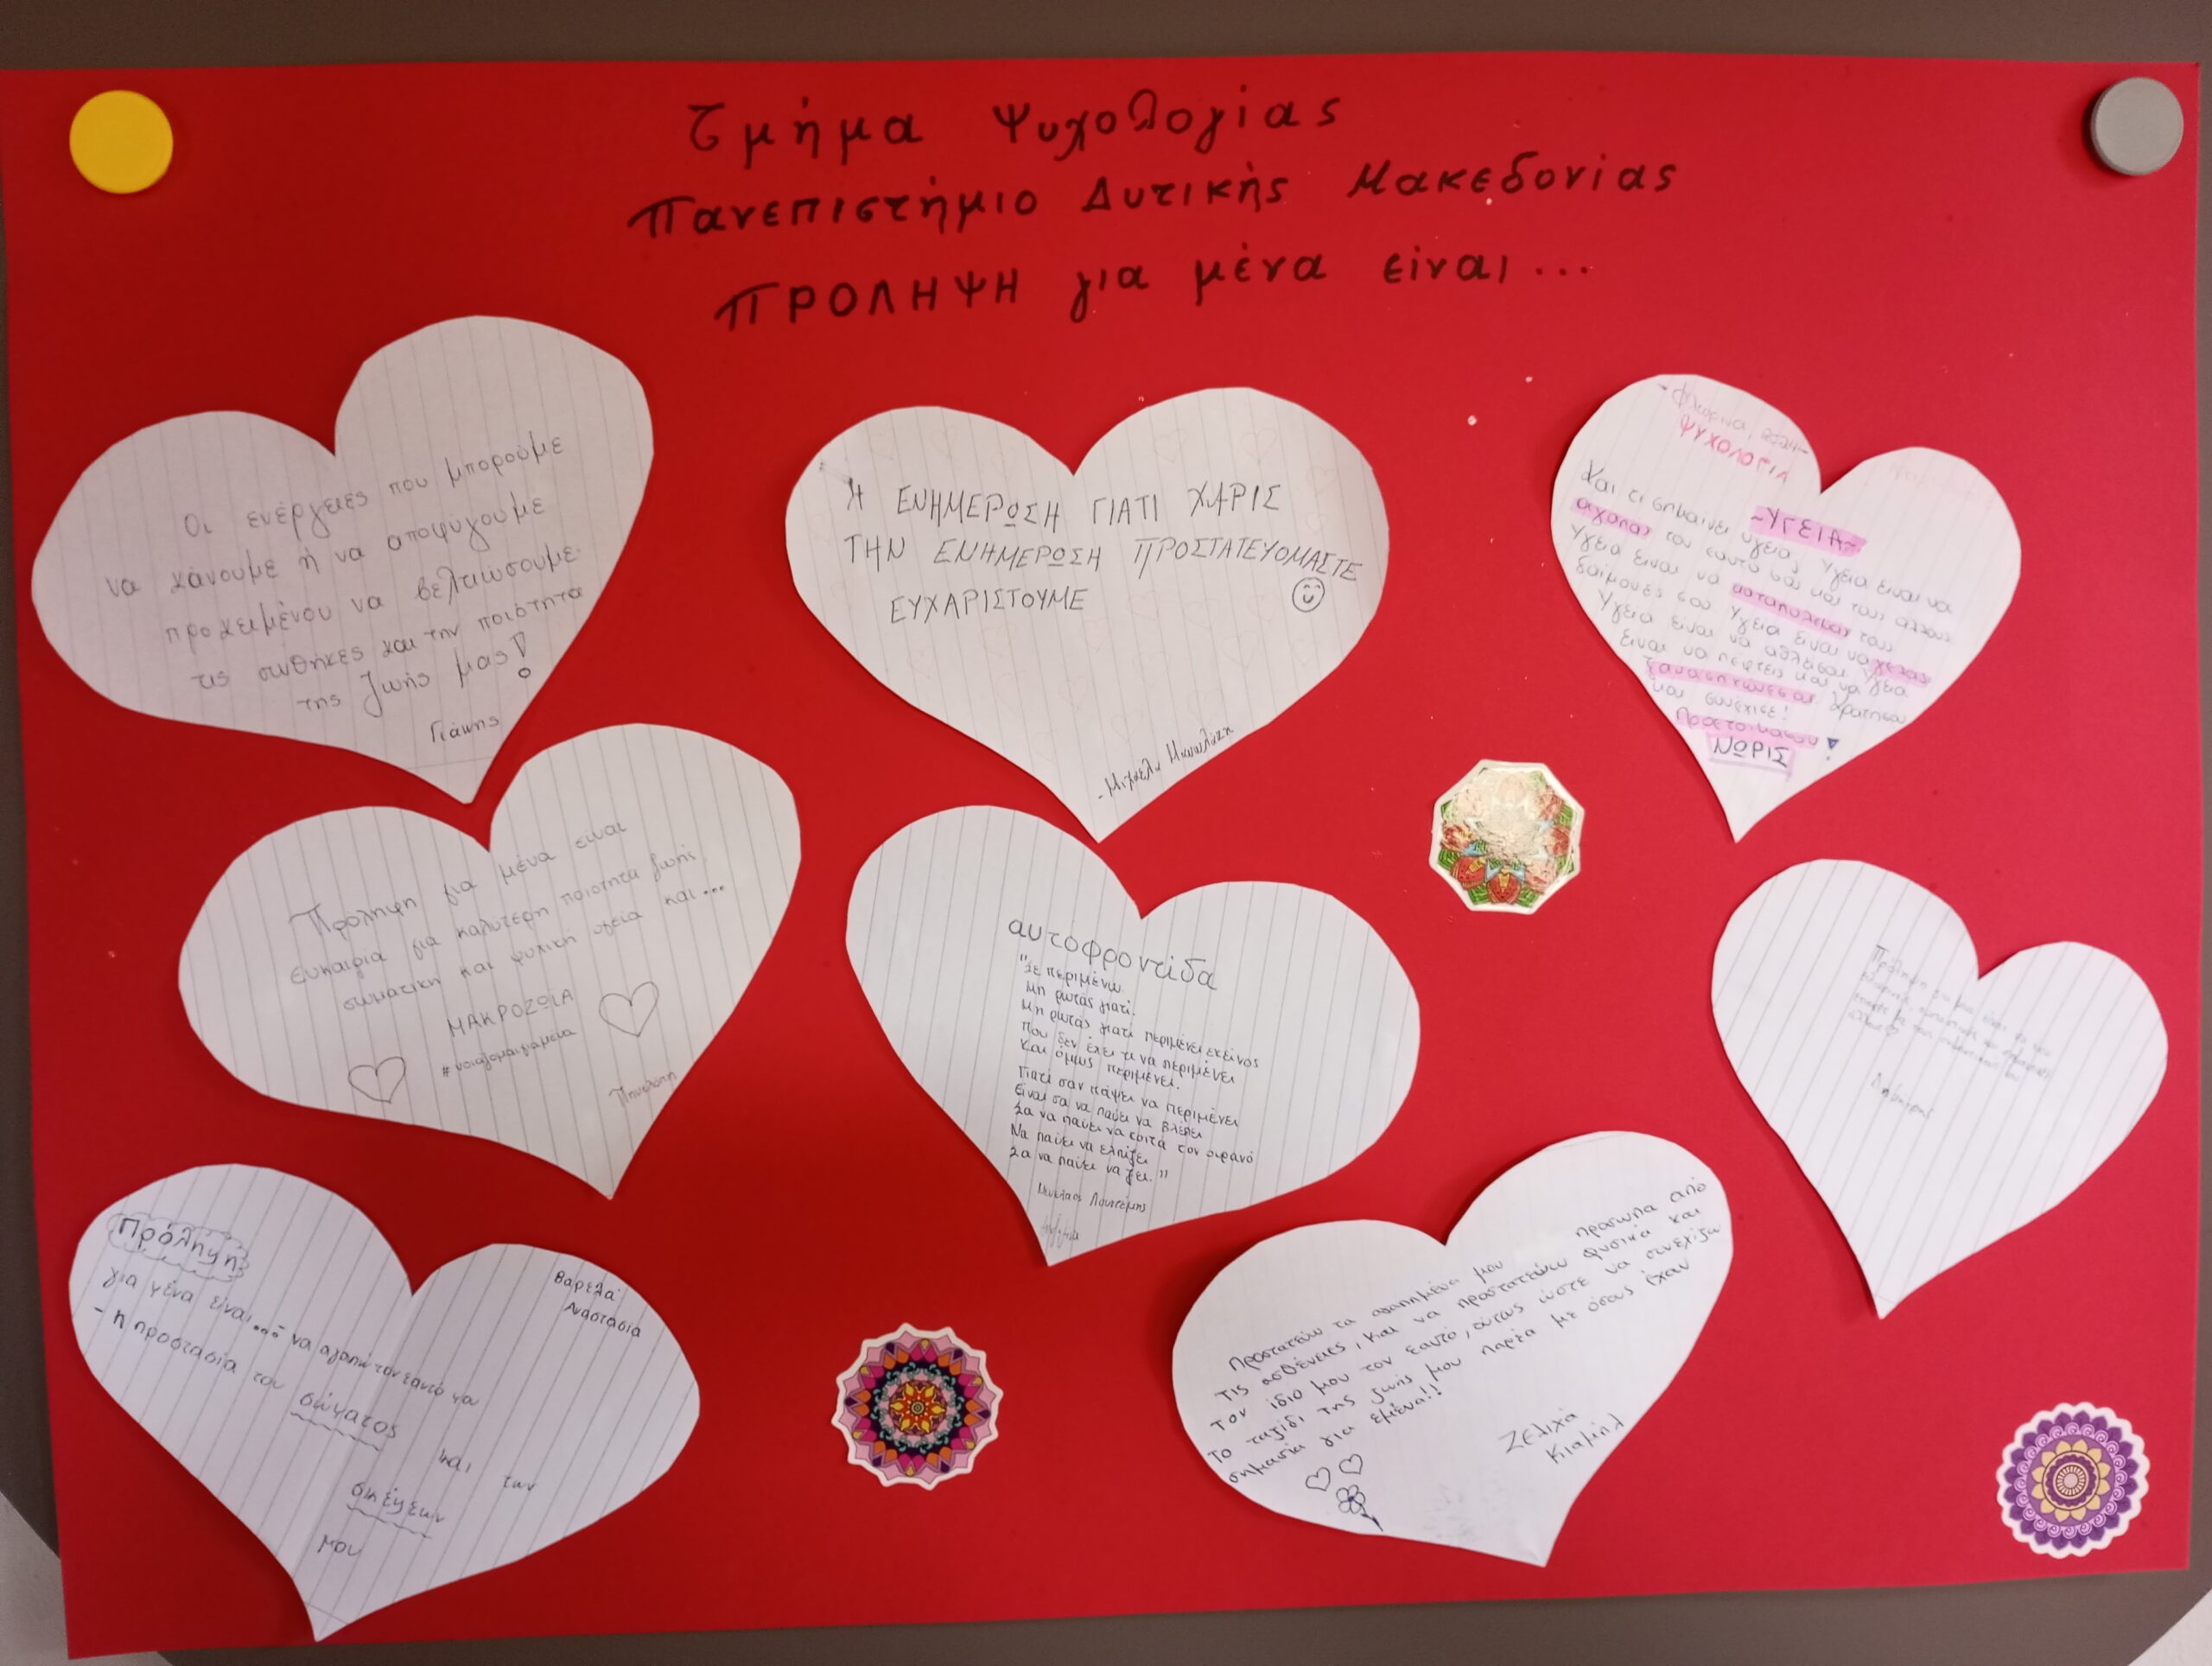 Τμήμα Ψυχολογίας
Πανεπιστήμιο Δυτικής Μακεδονίας
ΠΡΟΛΗΨΗ για μένα είναι...
Οι ενέργειες που μπορούμε
να κάνουμε ή να αποφύγουμε
προκειμένου να βελτιώσουμε
τις συνθήκες και την ποιότητα
της ζωής μας!
Γιάννης
Η ΕΝΗΜΕΡΩΣΗ ΓΙΑΤΙ ΧΑΡΙΣ
ΤΗΝ ΕΝΗΜΕΡΩΣΗ ΠΡΟΣΤΑΤΕΥΟΜΑΣΤΕ
ΕΥΧΑΡΙΣΤΟΥΜΕ
Φλώρινα, 2024-
ΨΥΧΟΛΟΓΙΑ
-ΥΓΕΙΑ-
Και τι σημαίνει υγεία; Υγεία είναι να
αγαπάς τον εαυτό σου και τους άλλους
Υγεία είναι να καταπολεμάς τους
δαίμονές σου Υγεία είναι να γελάς
Υγεία είναι να αθλείσαι Υγεία
είναι να πέφτεις και να
ξανασηκώνεσαι Κρατήσου
και συνέχισε!
Προετοιμάσου
ΝΩΡΙΣ
Πρόληψη για μένα είναι
ευκαιρία για καλύτερη ποιότητα ζωής,
σωματική και ψυχική υγεία και...
ΜΑΚΡΟΖΩΙΑ
#νοιαζομαιγιαμενα
Πηνελόπη
αυτοφροντίδα
"Σε περιμένω
Μη ρωτάς γιατί.
Μη ρωτάς γιατί περιμένει εκείνος
Που δεν έχει τι να περιμένει
Και όμως περιμένει.
Γιατί σαν πάψει να περιμένει
Είναι σα να παύει να βλέπει
Σα να παύει να κοιτά τον ουρανό
Να παύει να ελπίζει
Σα να παύει να ζει."
Μενέλαος Λουντέμης
Πρόληψη για μένα είναι να
Δημήτρης
Πρόληψη
για μένα είναι...- να αγαπώ τον εαυτό μου
- η προστασία του σώματος
και των
σκέψεων
μου
Βαρελά
Αναστασία
Προστατεύω τα αγαπημένα μου πρόσωπα από
τις ασθένειες, και να προστατεύω φυσικά και
τον ίδιο μου τον εαυτό, ούτως ώστε να συνεχίζω
το ταξίδι της ζωής μου παρέα με όσους έχουν
σημασία για εμένα!!
Ζελιχά
Κιαμήλ